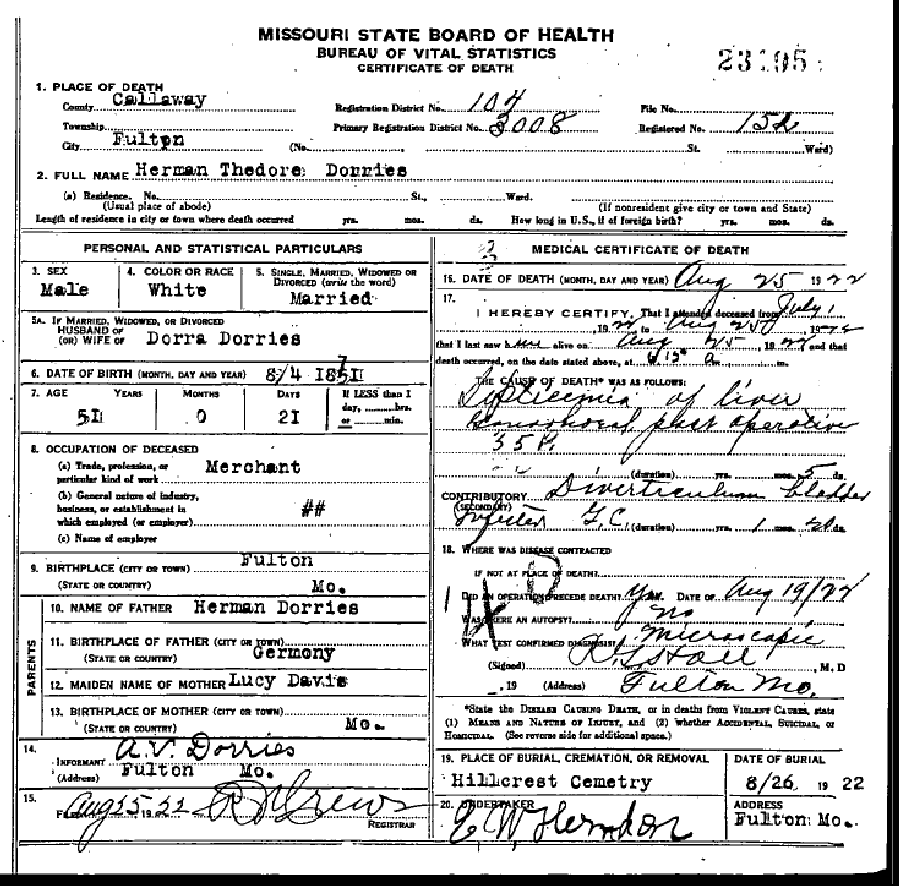 MISSOURI STATE BOARD OF HEALTH
BUREAU OF VITAL STATISTICS
CERTIFICATE OF DEATH
1. PLACE OF DEATH
County Callaway Registration District No. 104 File No.
Township Primary Registration District No. 3008 Registered No. 152
City Fulton (No. St. Ward)
2. FULL NAME Herman Thedore Dorries
(a) Residence. No. St., Ward.
(Usual place of abode) (If nonresident give city or town and State)
Length of residence in city or town where death occurred yrs. mos. ds. How long in U.S., if of foreign birth? yrs. mos. ds.
PERSONAL AND STATISTICAL PARTICULARS
3. SEX 4. COLOR OR RACE 5. SINGLE, MARRIED, WIDOWED OR
DIVORCED (write the word)
Male White Married
5A. IF MARRIED, WIDOWED, OR DIVORCED
HUSBAND OF
(OR) WIFE OF Dorra Dorries
6. DATE OF BIRTH (MONTH, DAY AND YEAR) 8/4
7. AGE YEARS MONTHS DAYS If LESS than 1
day, hrs.
or min.
51 0 21
8. OCCUPATION OF DECEASED
(a) Trade, profession, or
particular kind of work Merchant
(b) General nature of industry,
business, or establishment in
which employed (or employer) ##
(c) Name of employer
9. BIRTHPLACE (CITY OR TOWN) Fulton
(STATE OR COUNTRY) Mo.
PARENTS
10. NAME OF FATHER Herman Dorries
11. BIRTHPLACE OF FATHER (CITY OR TOWN)
(STATE OR COUNTRY) Germony
12. MAIDEN NAME OF MOTHER Lucy Davis
13. BIRTHPLACE OF MOTHER (CITY OR TOWN)
(STATE OR COUNTRY) Mo.
14.
INFORMANT A.V. Dorries
(Address) Fulton Mo.
15.
Aug 25 1922
REGISTRAR
MEDICAL CERTIFICATE OF DEATH
16. DATE OF DEATH (MONTH, DAY AND YEAR) Aug 25 1922
17.
I HEREBY CERTIFY, That I attended deceased from July 1
1922 to Aug 25
that I last saw h alive on Aug 25, 1922 and that
death occurred, on the date stated above, at
THE CAUSE OF DEATH* WAS AS FOLLOWS:
of liver
post operative
(duration) yrs. mos. 5 ds.
CONTRIBUTORY Diverticulum bladder
(SECONDARY)
(duration) yrs. 1 mos. 20 ds.
18. WHERE WAS DISEASE CONTRACTED
IF NOT AT PLACE OF DEATH?
DID AN OPERATION PRECEDE DEATH? Yes. DATE OF Aug 19/22
WAS THERE AN AUTOPSY? No
WHAT TEST CONFIRMED DIAGNOSIS? Microscopic
(Signed) , M. D
, 19 (Address) Fulton Mo.
*State the DISEASE CAUSING DEATH, or in deaths from VIOLENT CAUSES, state
(1) MEANS AND NATURE OF INJURY, and (2) whether ACCIDENTAL, SUICIDAL, or
HOMICIDAL. (See reverse side for additional space.)
19. PLACE OF BURIAL, CREMATION, OR REMOVAL DATE OF BURIAL
Hillcrest Cemetry 8/26 19 22
20. UNDERTAKER ADDRESS
E W Herndon Fulton Mo.